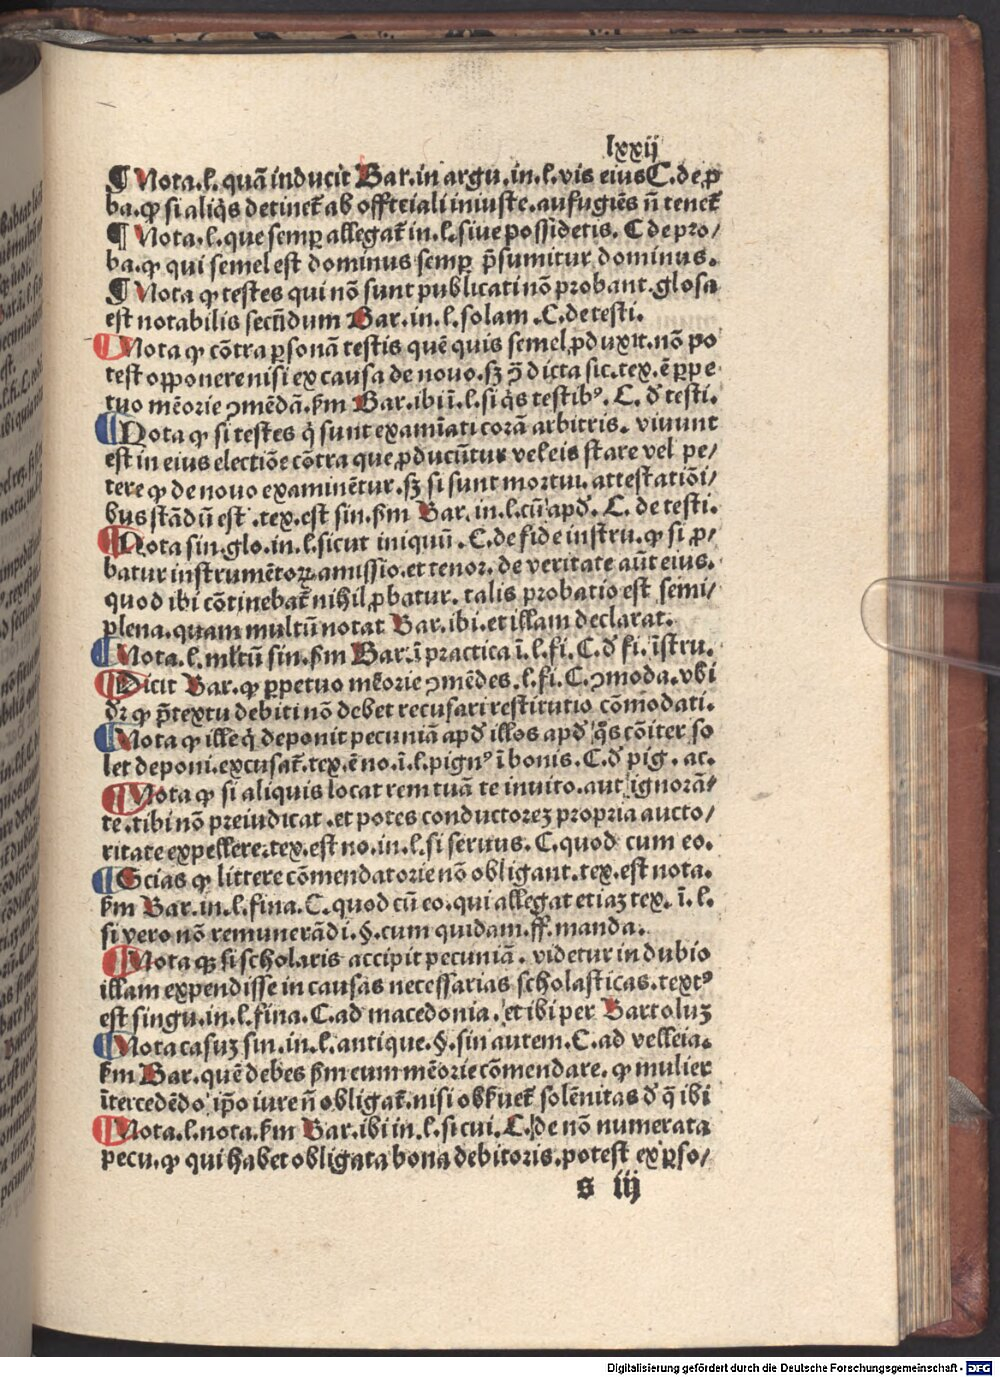 lxxij
¶ Nota.l. quã inducit Bar. in argu. in. l. vis eius C. de ꝓ
ba. ꝙ si aliq̃s detinet᷑ ab officiali iniuste. aufugiẽs nõ tenet᷑
¶ Nota. l. que semꝑ allegat᷑ in. l. siue possidetis. C de pro/
ba. ꝙ qui semel est dominus semꝑ p̃sumitur dominus.
¶ Nota ꝙ testes qui nõ sunt publicati nõ probant. glosa
est notabilis secũdum Bar. in. l. solam. C. de testi.
¶ Nota ꝙ cõtra ꝑsonã testis quẽ quis semel ꝓduxit. nõ po
test opponere nisi ex causa de nouo. sꝫ dicta sic. tex. ẽ ꝑpe
tuo mẽorie ꝯmẽdã. ẜm Bar. ibi ĩ. l. si q̃s testibꝰ. C. đ testi.
¶ Nota ꝙ si testes q̇ sunt examĩati corã arbitris. viuunt
est in eius electiõe cõtra quẽ ꝓducũtur vel eis stare vel pe/
tere ꝙ de nouo examinẽtur. sꝫ si sunt mortui. attestatiõi/
bus stãdũ est. tex. est sin. ẜm Bar. in. l. cũ apđ. C. de testi.
¶ Nota sin. glo. in. l. sicut iniquũ. C. de fide instru. ꝙ si ꝓ/
batur instrumẽtoꝝ amissio. et tenor. de veritate aũt eius.
quod ibi cõtinebat᷑ nihil ꝓbatur. talis probatio est semi/
plena. quam multũ notat Bar. ibi. et illam declarat.
¶ Nota. l. ml̃tũ sin. ẜm Bar. ĩ practica ĩ. l. fi. C. đ fi. ĩstru.
¶ Dicit Bar. ꝙ ꝑpetuo mẽorie ꝯmẽdes. l. fi. C. ꝯmoda. vbi
dr̃ ꝙ p̃textu debiti nõ debet recusari restitutio cõmodati.
¶ Nota ꝙ ille q̇ deponit pecuniã apđ illos apđ q̃s cõiter so
let deponi. excusat᷑. tex. ẽ no. ĩ. l. pignꝰ ĩ bonis. C. đ pig. ac.
¶ Nota ꝙ si aliquis locat rem tuã te inuito. aut ignorã/
te. tibi nõ preiudicat. et potes conductorẽ propria aucto/
ritate expellere. tex. est no. in. l. si seruus. C. quod cum eo.
¶ Scias ꝙ littere cõmendatorie nõ obligant. tex. est nota.
ẜm Bar. in. l. fina. C. quod cũ eo. qui allegat etiaꝫ tex. ĩ. l.
si vero nõ remunerãdi. §. cum quidam. ff. manda.
¶ Nota ꝙ si scholaris accipit pecuniã. videtur in dubio
illam expendisse in causas necessarias scholasticas. textꝰ
est singu. in. l. fina. C. ad macedonia. et ibi per Bartoluꝫ
¶ Nota casuꝫ sin. in. l. antique. §. sin autem. C. ad velleia.
ẜm Bar. quẽ debes ẜm eum mẽorie cõmendare. ꝙ mulier
ĩtercedẽdo ip̃o iure ñ obligat᷑. nisi obẜuet᷑ solẽnitas đ q̃ ibi
¶ Nota. l. nota. ẜm Bar. ibi in. l. si cui. C. de nõ numerata
pecu. ꝙ qui habet obligata bona debitoris. potest ex ꝑso/
s iij
Digitalisierung gefördert durch die Deutsche Forschungsgemeinschaft - DFG